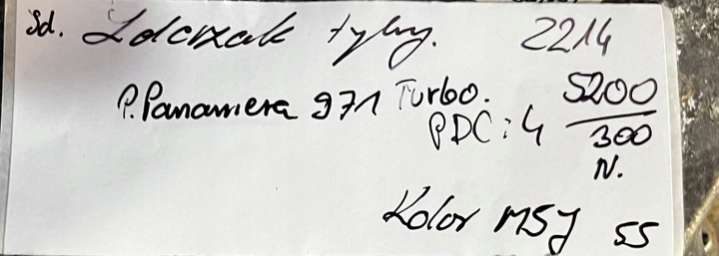 Sd. Zderzak tylny. 2214
P. Panamera 971 Turbo. 5200
PDC: 4 300
N.
Kolor M5J SS